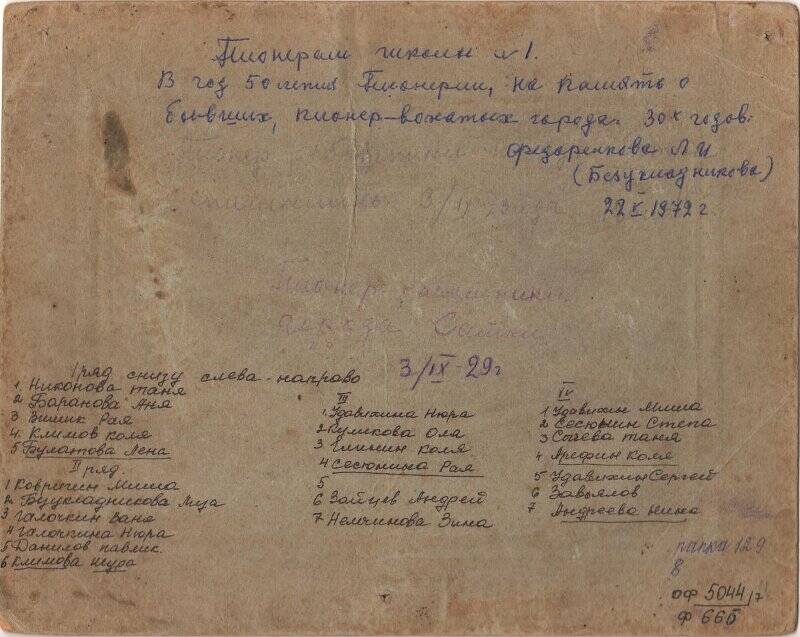 Пионерам школы №1.
В год 50 летия Пионерии, на память о
бывших, пионер-вожатых города. 30х годов.
Федаренкова Л И
(Безукладникова)
22 X 1972 г.
Пионер
3/IX
Пионер
города Сатки
3/IX-29г
I ряд снизу слева-направо
1. Никонова таня
2 Баранова Аня
3 Зимик Рая
4. Климов коля
5 Булатова Лена
II ряд.
1 Ковригин Миша
2 Безукладникова Луза
3 Галочкин Ваня
4 Галочкина Нюра
5 Данилов павлик.
6 Климова Шура
III
1. Удавихина Нюра
2 Куликова Оля
3 Глинин коля
4 Сесюнина Рая
5
6 Зайцев Андрей
7 Немчинова Зина
IV
1 Удавихин Миша
2 Сесюнин Степа
3 Сычева таня
4 Арефин Коля
5 Удавихин Сергей
6 Завьялов
7 Андреева Нина
папка 129
8
оф 5044/7
ф 665